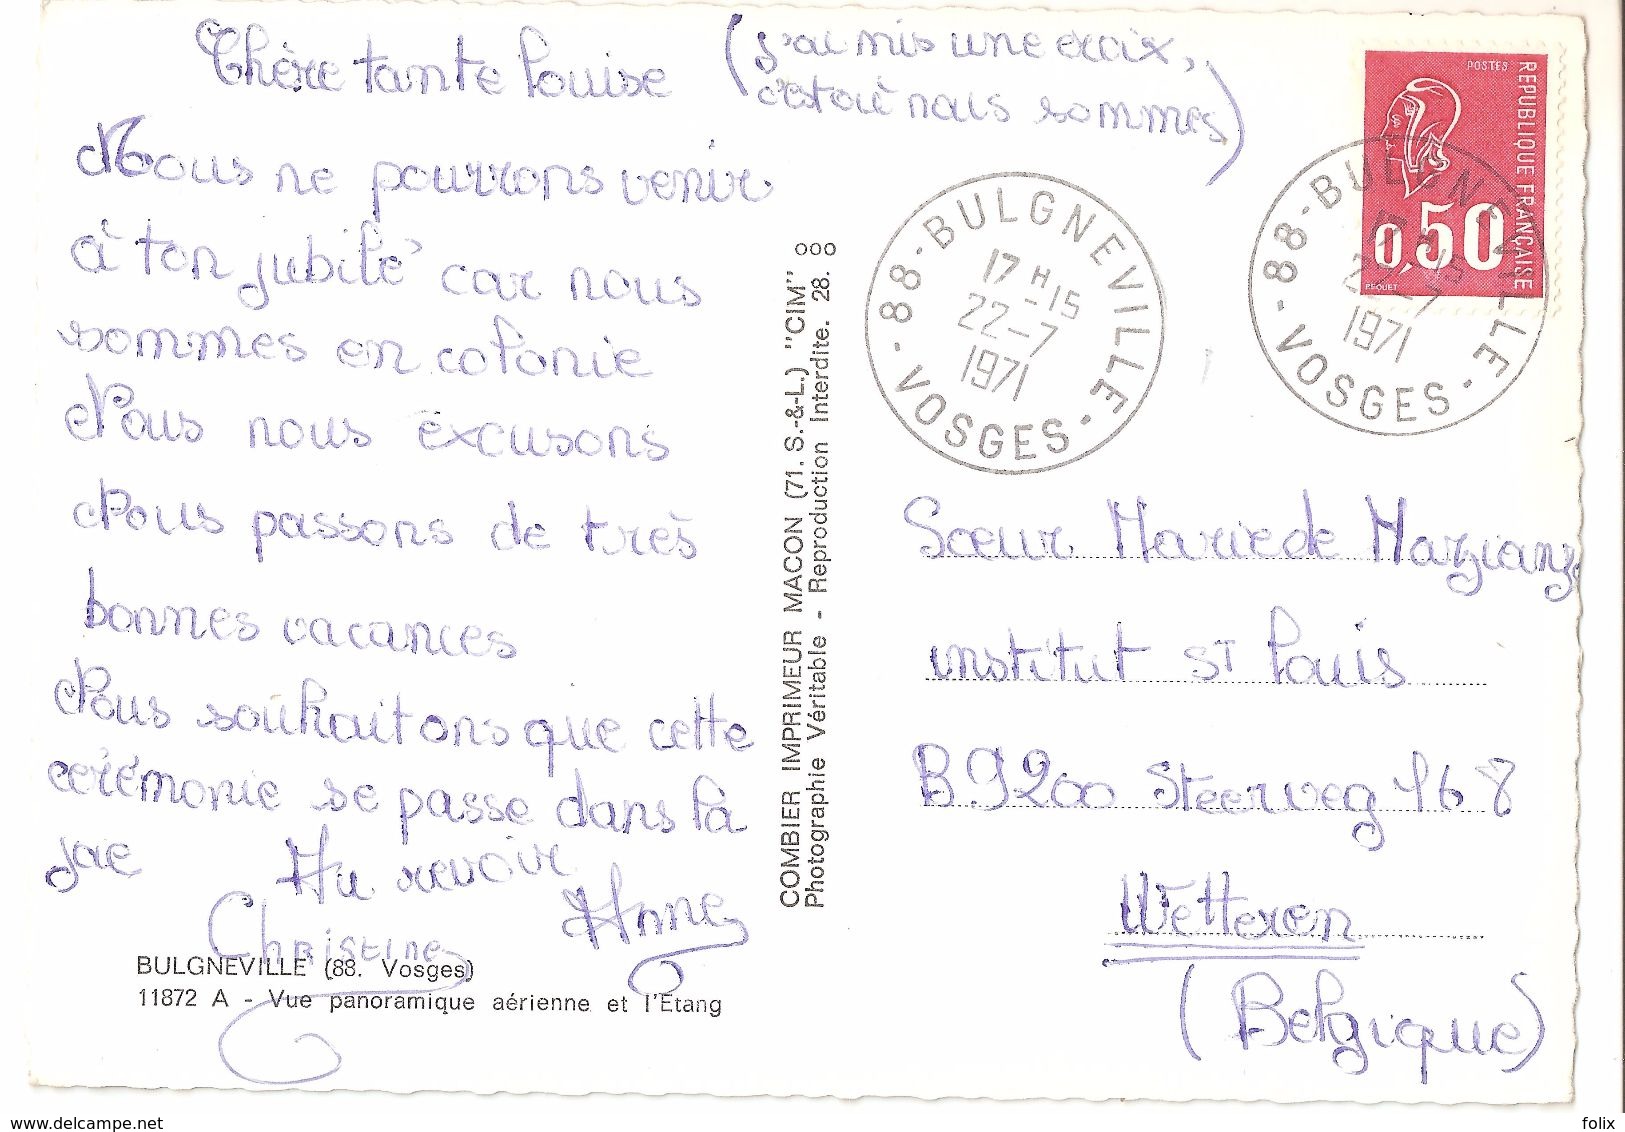 Chère tante Louise
(j'ai mis une croix,
c'est où nous sommes)
Nous ne pourrons venir
à ton jubilé car nous
sommes en colonie
Nous nous excusons
Nous passons de très
bonnes vacances
Nous souhaitons que cette
cérémonie se passe dans la
joie Au revoir
Christine Anne
BULGNEVILLE (88. Vosges)
11872 A - Vue panoramique aérienne et l'Etang
COMBIER IMPRIMEUR MACON (71. S.-&-L.) "CIM"
Photographie Véritable - Reproduction Interdite. 28. ooo
88 - BULGNEVILLE - VOSGES -
17 H -15
22-7
1971
POSTES
REPUBLIQUE FRANÇAISE
0,50
BEQUET
88 - BULGNEVILLE - VOSGES -
17 H -15
22-7
1971
Sœur Marie de Nazianze
institut St Louis
B.9200 Steerweg 168
Wetteren
(Belgique)
www.delcampe.net
folix